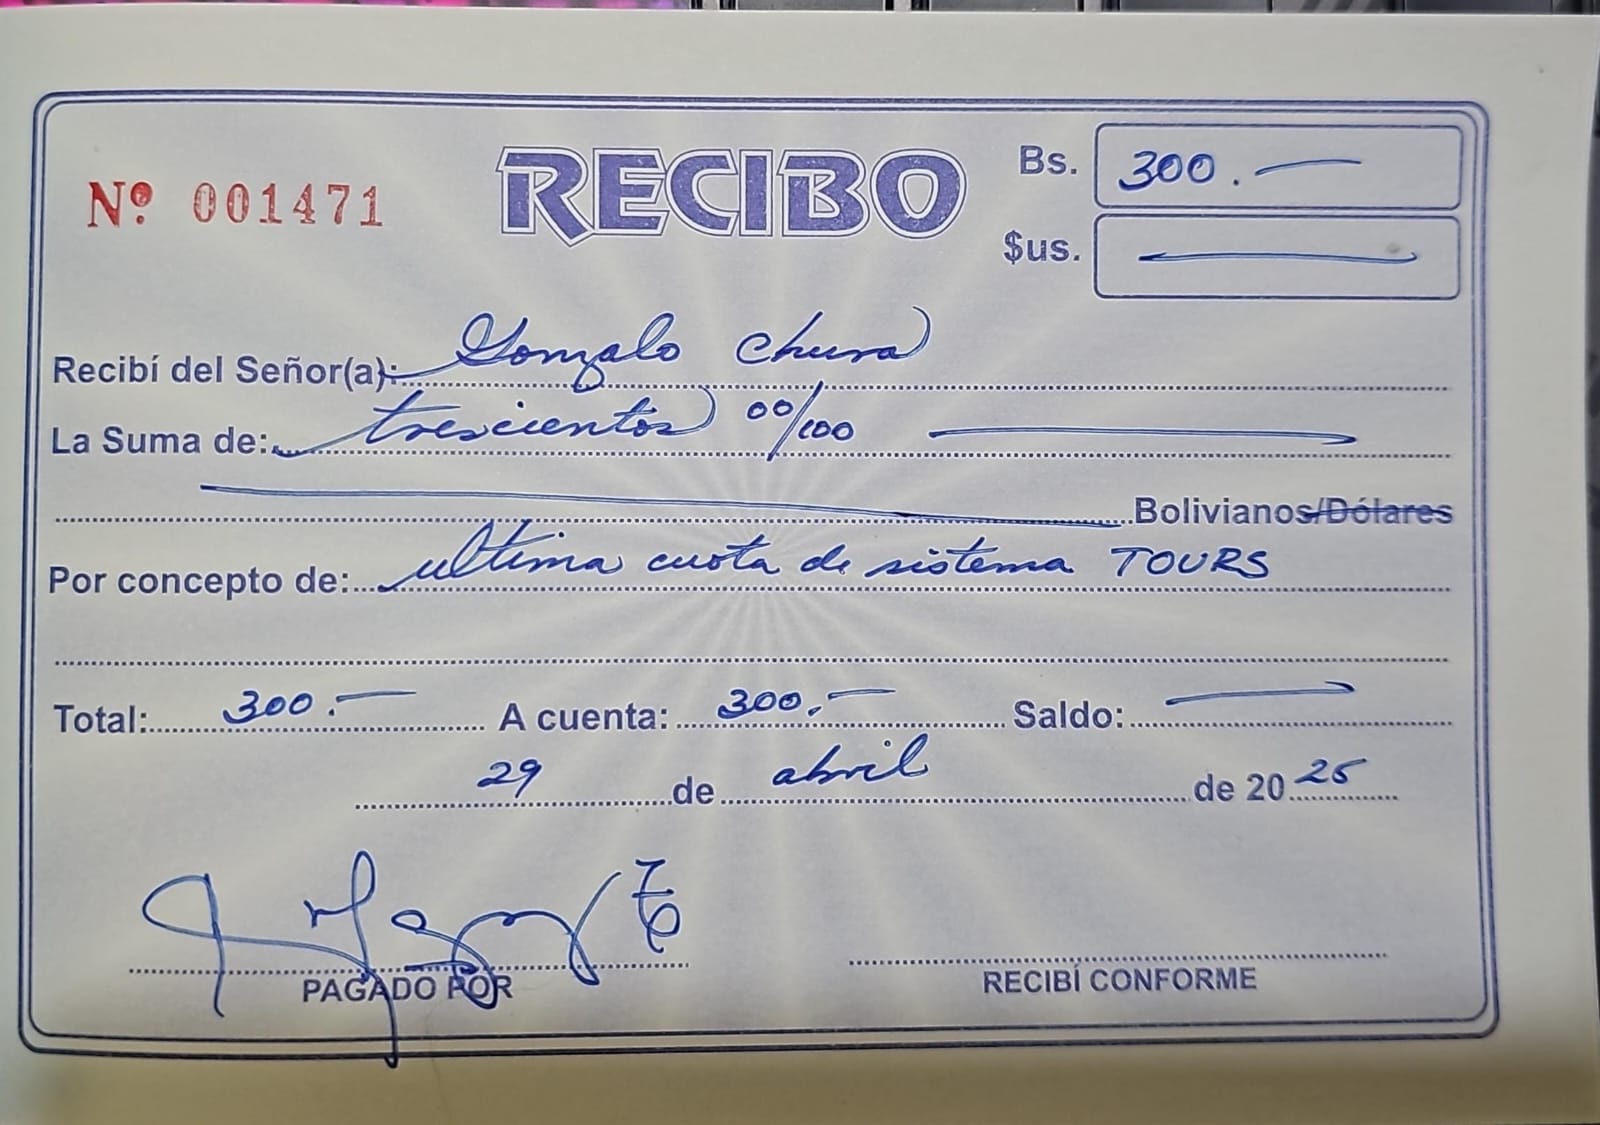 Nº 001471
RECIBO
Bs. 300.—
$us. —
Recibí del Señor(a): Gonzalo Chura
La Suma de: trescientos 00/100
Bolivianos/Dólares
Por concepto de: ultima cuota de sistema TOURS
Total: 300.— A cuenta: 300.— Saldo: —
29 de abril de 2025
PAGADO POR
RECIBÍ CONFORME